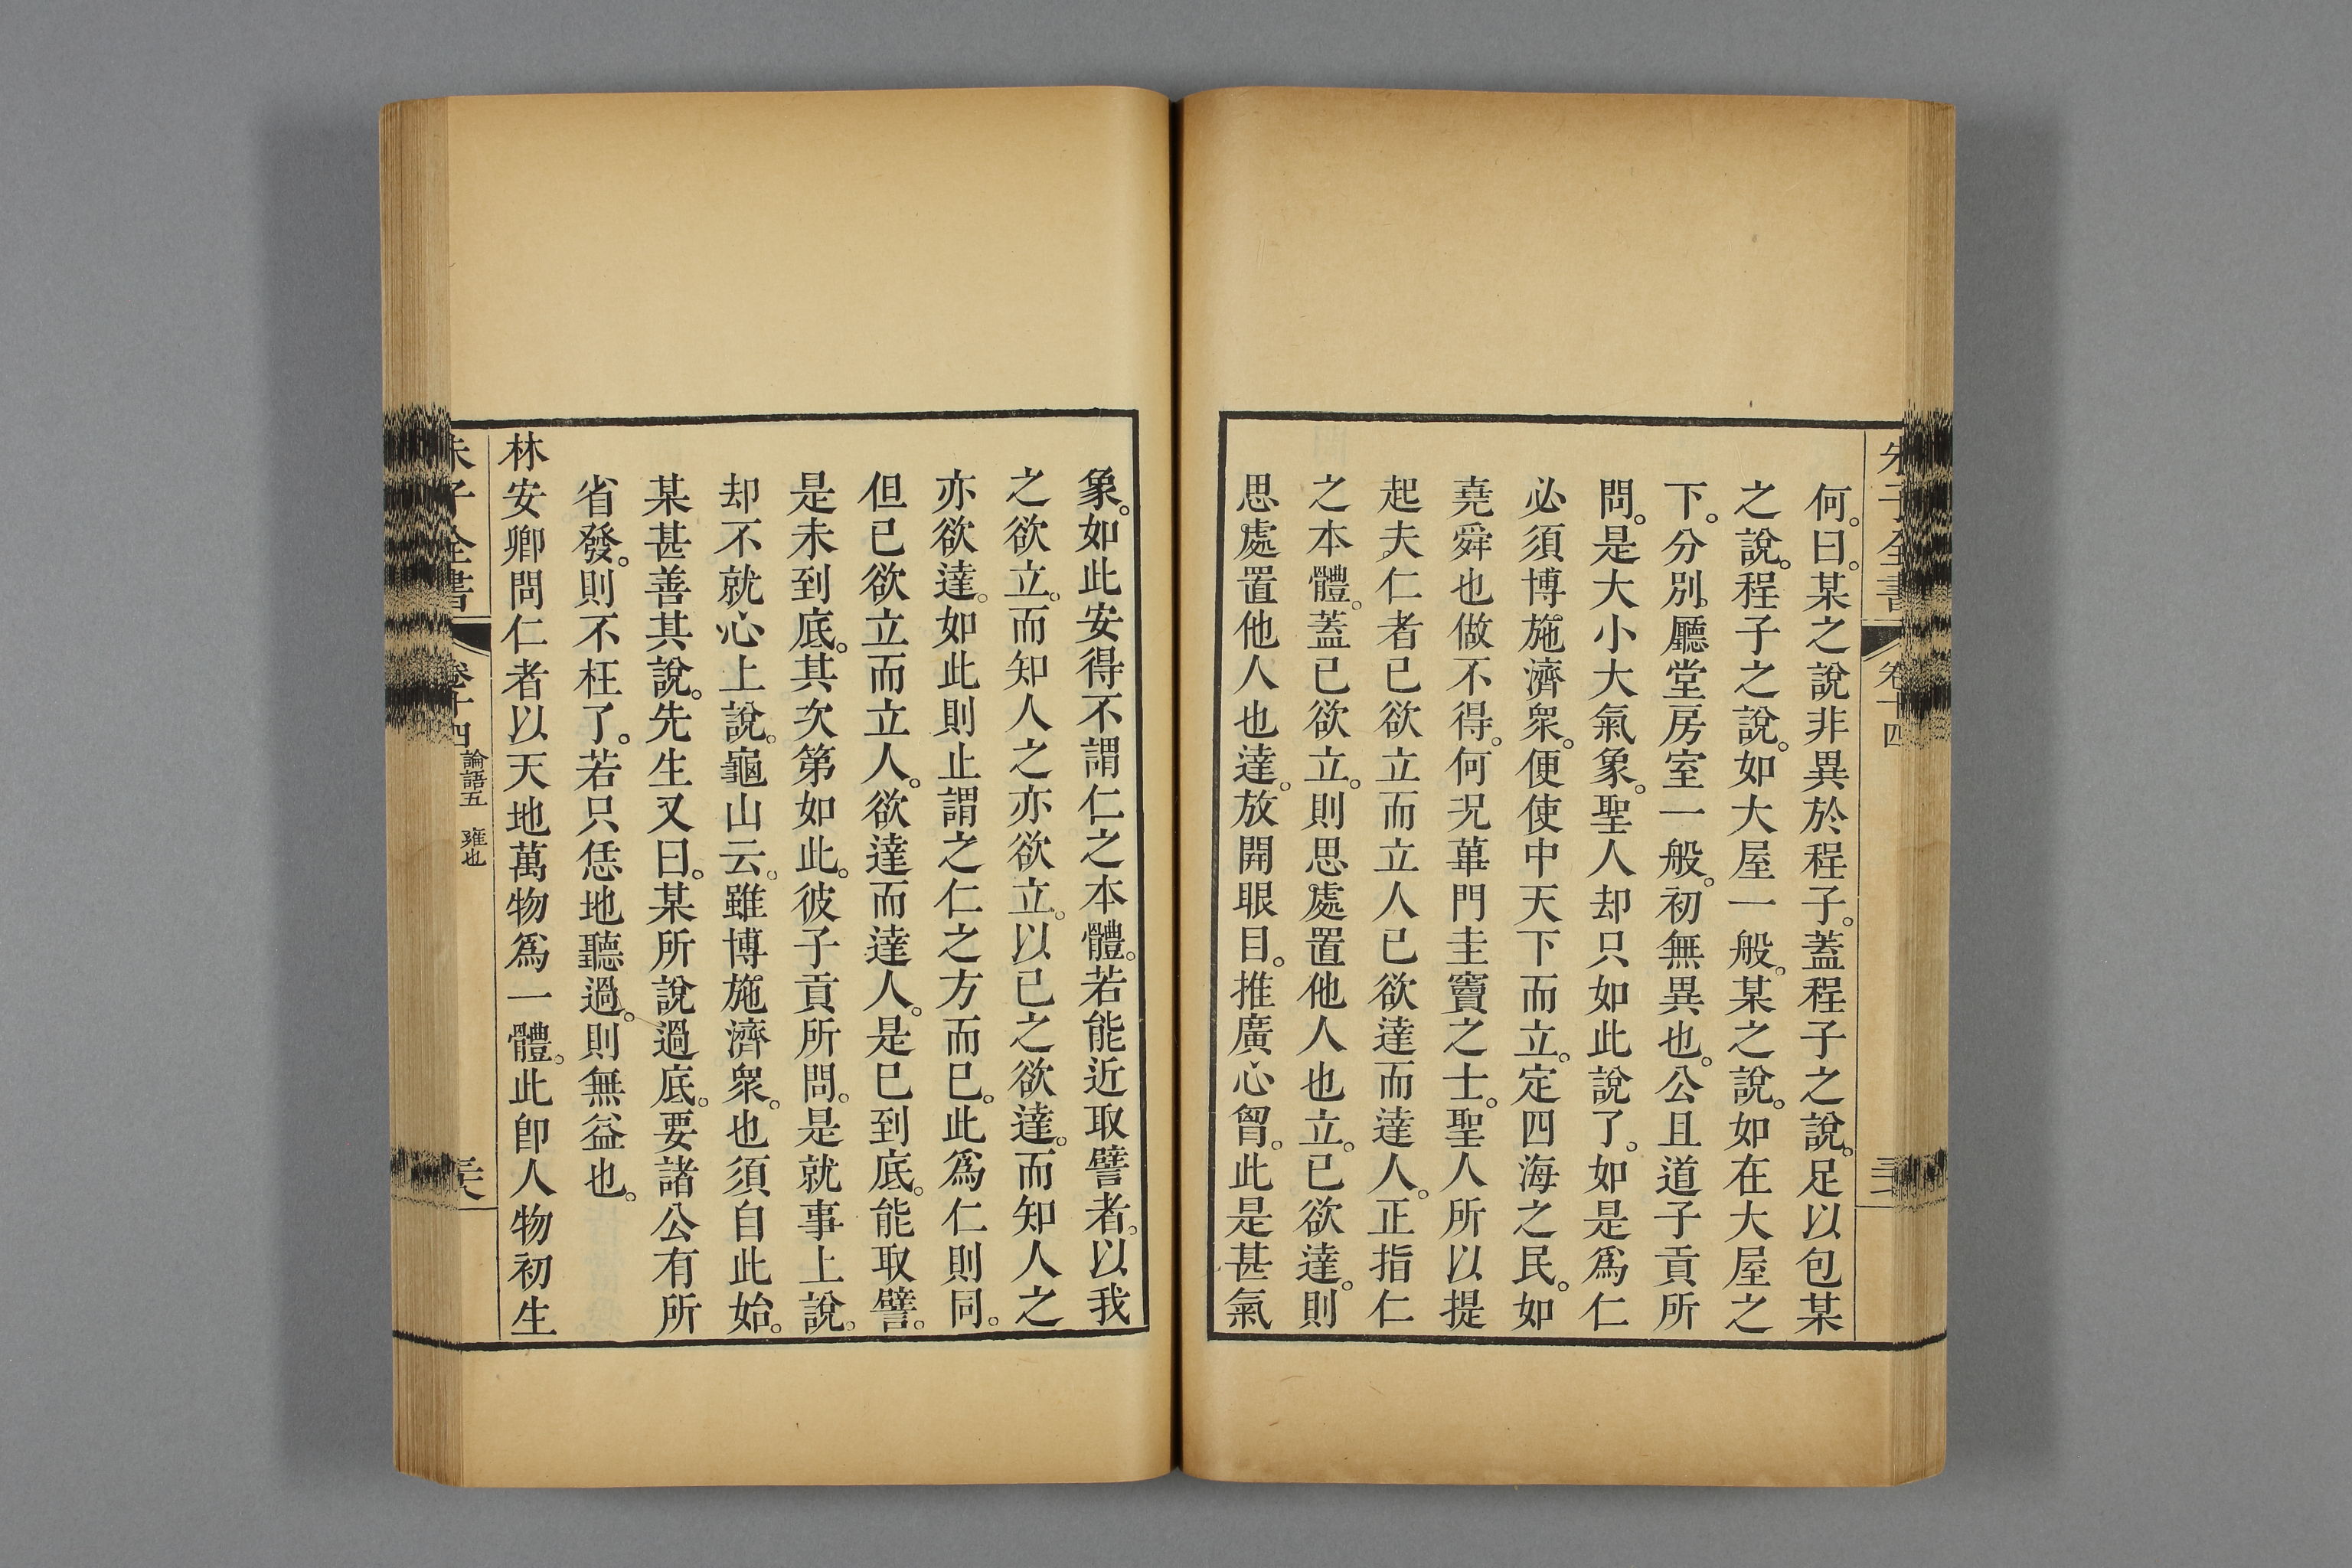 朱子全書
卷十四
何。曰。某之說非異於程子。蓋程子之說。足以包某
之說。程子之說。如大屋一般。某之說。如在大屋之
下。分別。廳堂房室一般。初無異也。公且道子貢所
問。是大小大氣象。聖人却只如此說了。如是爲仁
必須博施濟衆。便使中天下而立。定四海之民。如
堯舜也做不得。何況蓽門圭竇之士。聖人所以提
起夫仁者已欲立而立人已欲達而達人。正指仁
之本體。蓋已欲立。則思處置他人也立。已欲達。則
思處置他人也達。放開眼目。推廣心胷。此是甚氣
象。如此安得不謂仁之本體。若能近取譬者。以我
之欲立。而知人之亦欲立。以已之欲達。而知人之
亦欲達。如此則止謂之仁之方而已。此爲仁則同。
但已欲立而立人。欲達而達人。是已到底。能取譬。
是未到底。其次第如此。彼子貢所問。是就事上說。
却不就心上說。龜山云。雖博施濟衆。也須自此始。
某甚善其說。先生又曰。某所說過底。要諸公有所
省發。則不枉了。若只恁地聽過。則無益也。
林安卿問仁者以天地萬物爲一體。此卽人物初生
朱子全書
卷十四
論語五 雍也